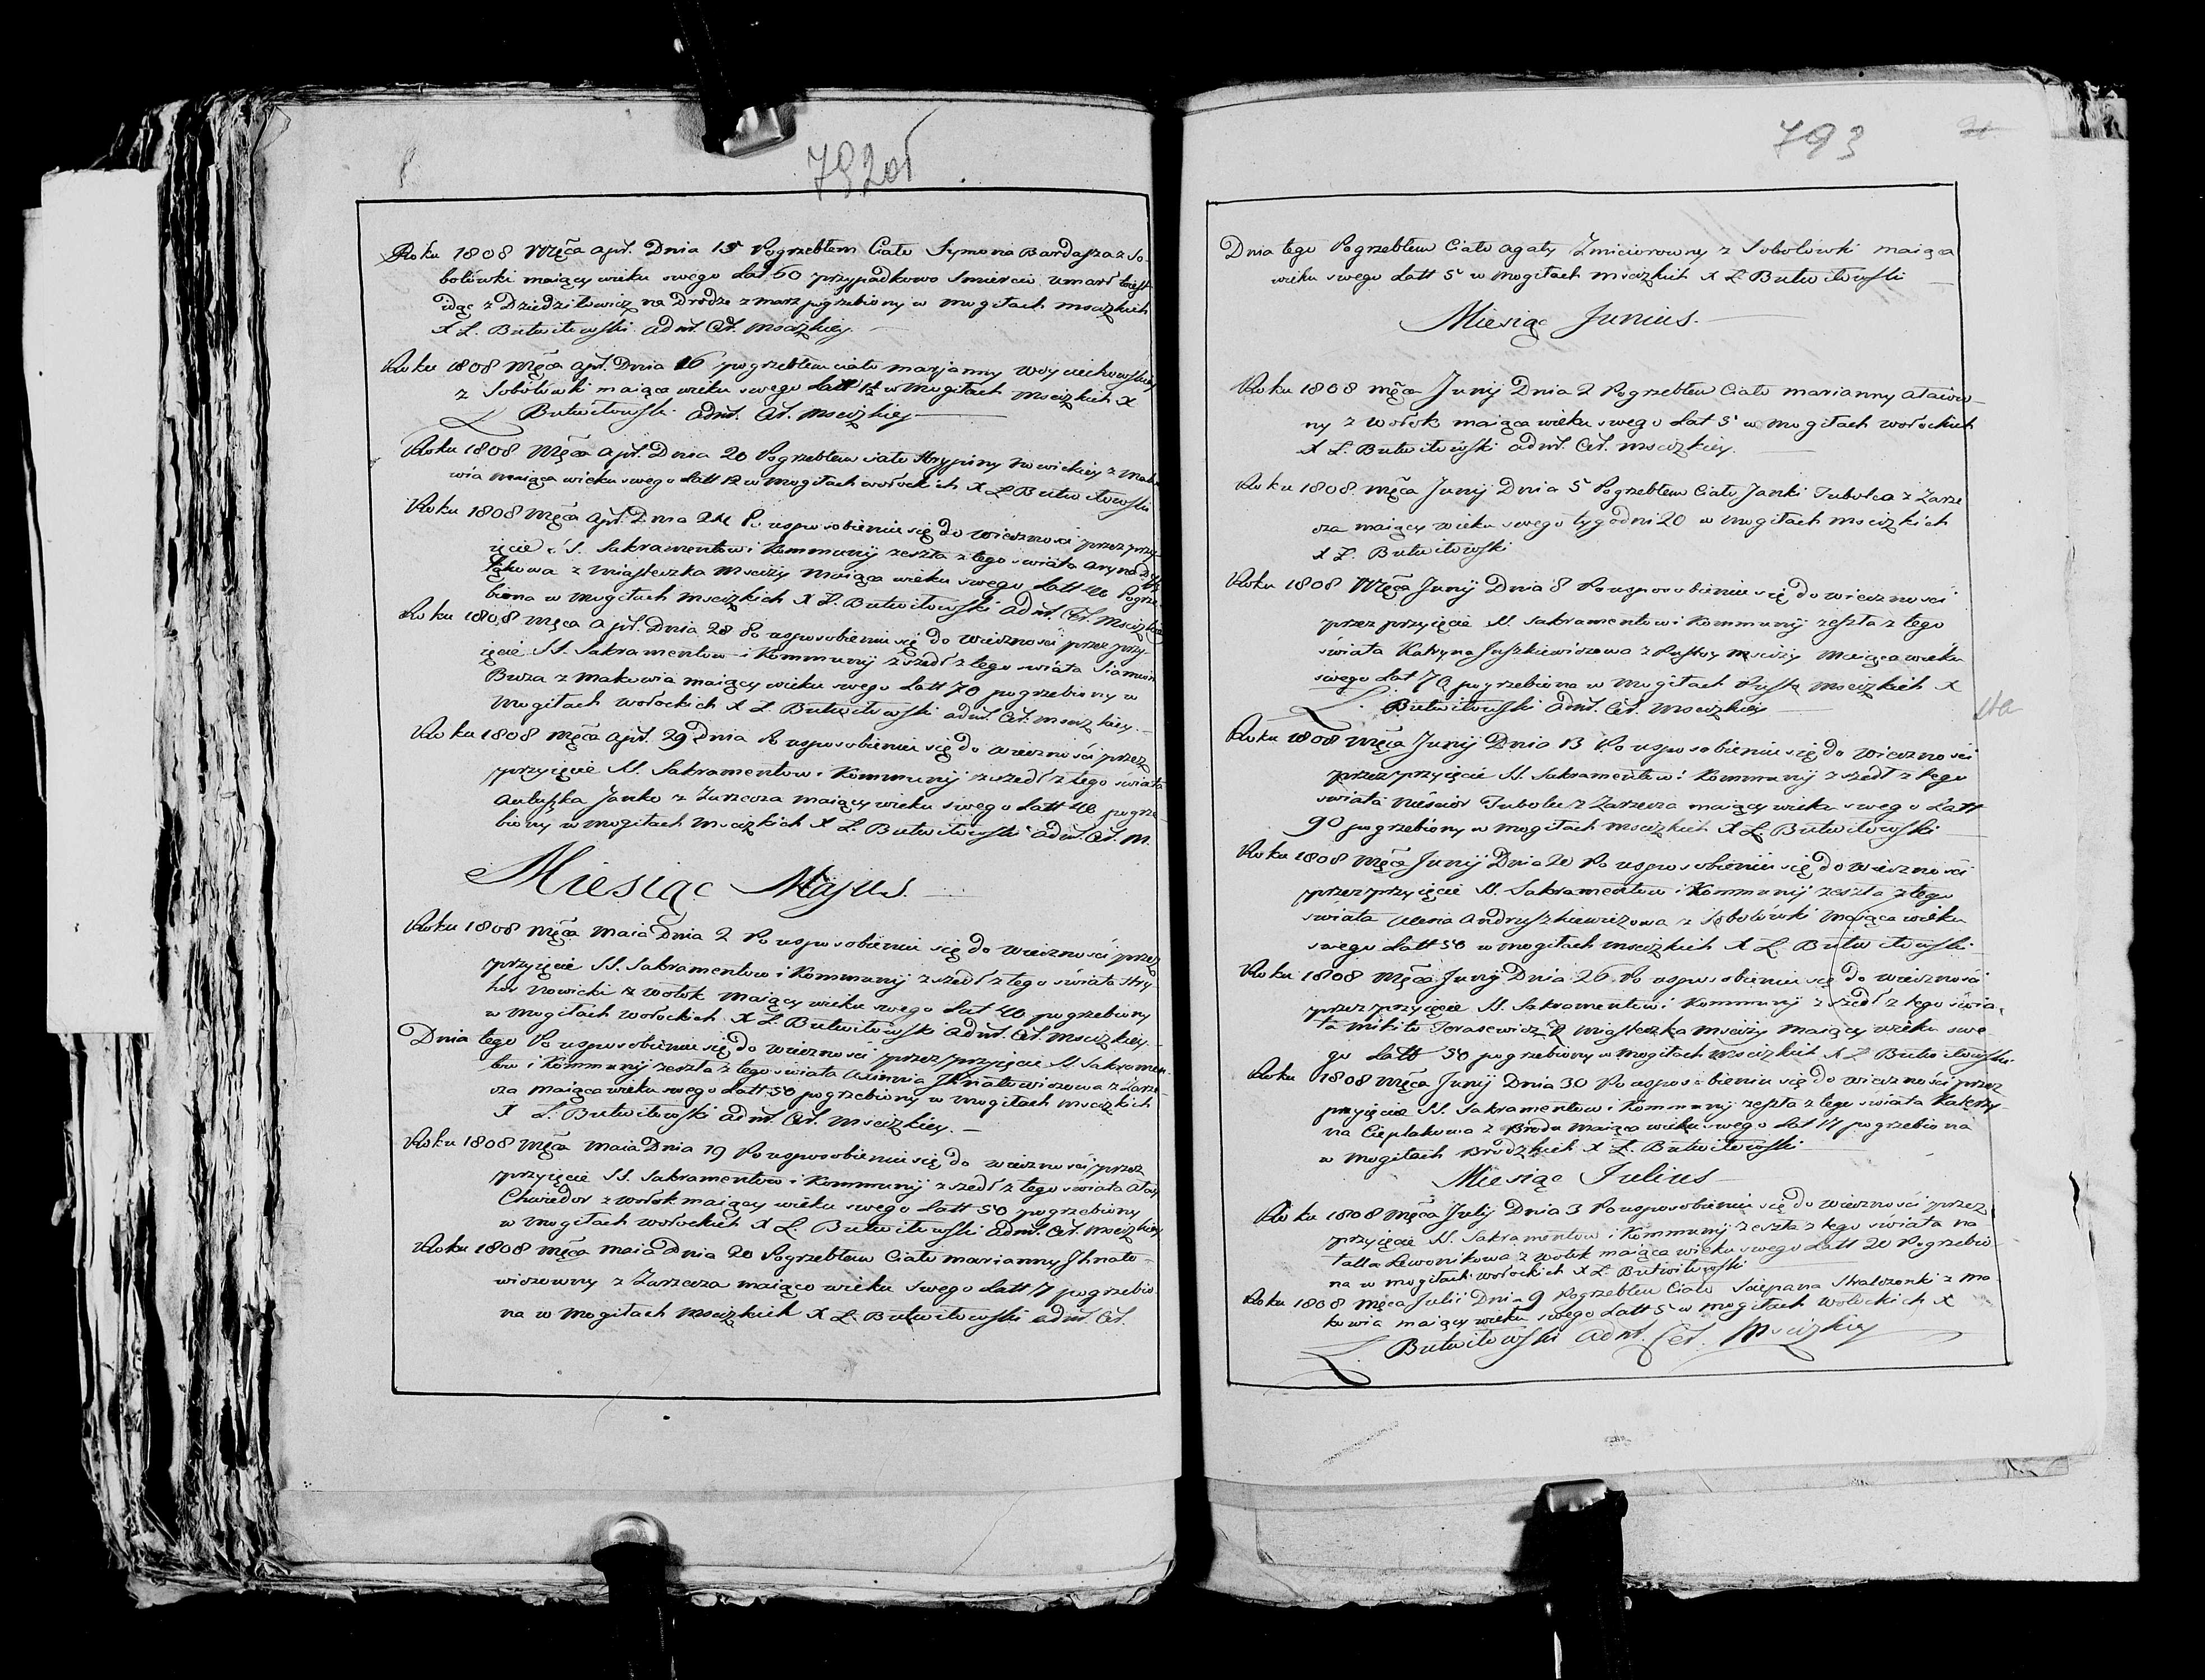 792 об
Roku 1808 Mȩ̃ca apr̃. Dnia 15 Pogrzebłem Ciało Symona Bardasza z So-
bolówki maiący wieku swego Lat 60 przypadkowo Smiercio umarł
idąc z Dziedziłowicz na Drodze zmarz pogrzebiony w mogiłach mscizkich
X L. Butwiłowski adm̃. Cer̃. mscizkiey.
Roku 1808 Mȩ̃ca apr̃. Dnia 16 pogrzebłem ciało marjanny Woyciechowskiey
z Sobolówki maiąca wieku swego Latt w Mogiłach Mscizkich X
L Butwiłowski adm̃. Cer̃. mscizkiey
Roku 1808 Mȩ̃ca apr̃. Dnia 20 Pogrzebłem ciało Hrypiny Nowickiey z Mako-
wia maiąca wieku swego Latt 12 w Mogiłach wołockich X L Butwiłowski
Roku 1808 Mȩ̃ca apr̃. Dnia 24 Po usposobieniu się do wieczności przez przy-
ięcie SS. Sakramentow i Kommunij zeszła z tego swiata Aryna
z Miasteczka Mscizy Maiąca wieku swego Latt 40 Pogrze-
biona w Mogiłach Mscizkich X L. Butwiłowski adm̃. Cer̃. Mscizkiey
Roku 1808 Mȩ̃ca apr̃. Dnia 28 Po usposobieniu się do Wieczności przez przy-
ięcie SS. Sakramentow i Kommunij zszedł z tego swiata Siamion
Buza z Makowia maiący wieku swego Latt 70 pogrzebiony w
Mogiłach wołockich X L Butwiłowski adm̃. Cer̃. mscizkiey.
Roku 1808 Mȩ̃ca apr̃. 29 Dnia Po usposobieniu się do wieczności przez
przyięcie SS. Sakramentow i Kommunij zszedł z tego swiata
Autuszka Janko z Zarzecza maiący wieku swego Latt 40 pogrze-
biony w mogiłach Mscizkich X L. Butwiłowski adm̃. Cer̃. M.
Miesiąc Majus.
Roku 1808 Mȩ̃ca Maia Dnia 2 Po usposobieniu się do Wieczności przez
przyięcie SS. Sakramentow i Kommunij zszedł z tego swiata Hry-
hor Nowicki z wołok Maiący wieku swego Lat 40 pogrzebiony
w Mogiłach wołockich X L. Butwiłowski adm̃. Cer̃. Mscizkiey.
Dnia tego Po usposobieniu się do wieczności przez przyięcie SS. Sakramen-
tow i Kommunij zeszła z tego swiata Ihnatowiczowa z Zarze-
cza Maiąca wieku swego Latt 50 pogrzebiony w Mogiłach mscizkich
X L. Butwiłowski adm̃. Cer̃. Mscizkiey.
Roku 1808 Mȩ̃ca Maia Dnia 19 Po usposobieniu się do wieczności przez
przyięcie SS. Sakramentow i Kommunij zszedł z tego swiata
Chwiedor z wołok maiący wieku swego Latt 50 pogrzebiony
w Mogiłach wołockich X L. Butwiłowski adm̃. Cer̃. Mscizkiey
Roku 1808 Mȩ̃ca maia Dnia 20 Pogrzebłem Ciało marianny Ihnato-
wiczowny z Zarzecza maiąco wieku Swego Latt 17 pogrzebio-
na w Mogiłach Mscizkich X L. Butwiłowski adm̃. Cer̃.
793
Dnia tego Pogrzebłem Ciało agaty Zmiciorowny z Sobolówki maiąca
wieku swego Latt 5 w mogiłach mscizkich X L. Butwiłowski
Miesiąc Junius.
Roku 1808 Mȩ̃ca Junij Dnia 2 Pogrzebłem Ciało marianny
ny z Wołok maiąca wieku swego Lat 5 w mogiłach wołockich
X L. Butwiłowski adm̃. Cer̃. mscizkiey.
Roku 1808 Mȩ̃ca Junij Dnia 5 Pogrzebłem Ciało Janki Tubolca z Zarze-
cza maiący wieku swego tygodni 20 w mogiłach mscizkich
X L. Butwiłowski
Roku 1808 Mȩ̃ca Junij Dnia 8 Po usposobieniu się do wieczności
przez przyięcie SS. Sakramentow i Kommunij zeszła z tego
świata Katryna Juszkiewiczowa z Pustoy Mscizy Maiąca wieku
swego Lat 70 pogrzebiona w Mogiłach Mscizkich X
L. Butwiłowski adm̃. Cer̃. Mscizkiey
Roku 1808 Mȩ̃ca Junij Dnia 13 Po usposobieniu się do Wieczności
przez przyięcie SS. Sakramentow i Kommunij zszedł z tego
swiata Nieścior Tubolec z Zarzecza maiący wieku swego Latt
90 pogrzebiony w Mogiłach Mscizkich X L. Butwiłowski
Roku 1808 Mȩ̃ca Junij Dnia 20 Po usposobieniu się do wieczności
przez przyięcie SS. Sakramentow i Kommunij zeszła z tego
swiata Andruszkiewiczowa z Sobolówki Maiąca wieku
swego Latt 50 w mogiłach mscizkich X L Butwiłowski
Roku 1808 Mȩ̃ca Junij Dnia 26 Po usposobieniu się do wieczności
przez przyięcie SS. Sakramentow i Kommunij zszedł z tego świa-
ta Mikita Tarasewicz z Miasteczka Mscizy Maiący wieku swe-
go Latt 50 pogrzebiony w Mogiłach Mscizkich X L Butwiłowski
Roku 1808 Mȩ̃ca Junij Dnia 30 Po usposobieniu się do wieczności przez
przyięcie SS. Sakramentow i Kommunij zeszła z tego swiata Katerzy-
na Cieplakowa z Brodu Maiąca wieku swego Lat 17 pogrzebiona
w Mogiłach Brodzkich X L. Butwiłowski
Miesiąc Julius
Roku 1808 Mȩ̃ca Julij Dnia 3 Po usposobieniu się do wieczności przez
przyięcie SS. Sakramentow i Kommunij zeszła z tego swiata Na-
talla Lewonikowa z wołok maiąca wieku swego Latt 20 Pogrzebio-
na w mogiłach wołockich X L. Butwiłowski
Roku 1808 Mȩ̃ca Julii Dnia 9 Pogrzebłem Ciało Sciepana Strałczonki z Ma-
kowia maiący wieku swego Latt 5 w Mogiłach Wołockich X
L. Butwiłowski adm̃. Cer̃. Mscizkiey